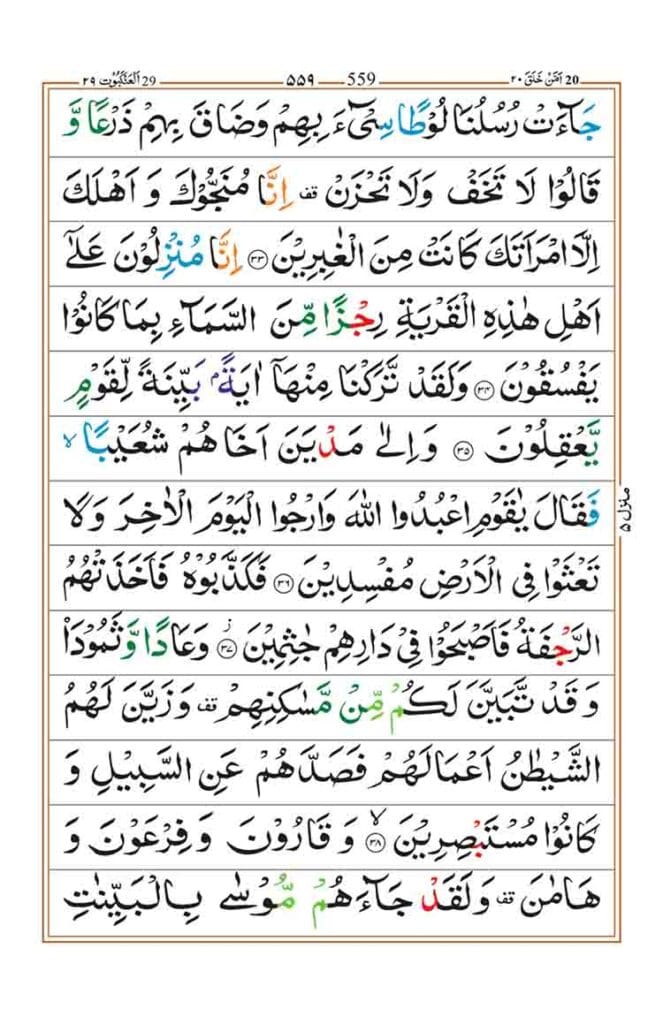 امن خلق ٢٠ 20
559 ـــ ٥٥٩
العنكبوت ٢٩ 29
جَآءَتْ رُسُلُنَا لُوْطًا سِیْٓءَ بِهِمْ وَضَاقَ بِهِمْ ذَرْعًا وَّ
قَالُوْا لَا تَخَفْ وَلَا تَحْزَنْ قف اِنَّا مُنَجُّوْكَ وَ اَهْلَكَ
اِلَّا امْرَاَتَكَ كَانَتْ مِنَ الْغٰبِرِیْنَ ﴿۳۳﴾ اِنَّا مُنْزِلُوْنَ عَلٰۤی
اَهْلِ هٰذِهِ الْقَرْیَةِ رِجْزًا مِّنَ السَّمَآءِ بِمَا كَانُوْا
یَفْسُقُوْنَ ﴿۳۴﴾ وَلَقَدْ تَّرَكْنَا مِنْهَاۤ اٰیَةًۢ بَیِّنَةً لِّقَوْمٍ
یَّعْقِلُوْنَ ﴿۳۵﴾ وَاِلٰی مَدْیَنَ اَخَاهُمْ شُعَیْبًا ۙ
فَقَالَ یٰقَوْمِ اعْبُدُوا اللّٰهَ وَارْجُوا الْیَوْمَ الْاٰخِرَ وَلَا
تَعْثَوْا فِی الْاَرْضِ مُفْسِدِیْنَ ﴿۳۶﴾ فَكَذَّبُوْهُ فَاَخَذَتْهُمُ
الرَّجْفَةُ فَاَصْبَحُوْا فِیْ دَارِهِمْ جٰثِمِیْنَ ؗ﴿۳۷﴾ وَعَادًا وَّثَمُوْدَا۟
وَ قَدْ تَّبَیَّنَ لَكُمْ مِّنْ مَّسٰكِنِهِمْ قف وَ زَیَّنَ لَهُمُ
الشَّیْطٰنُ اَعْمَالَهُمْ فَصَدَّهُمْ عَنِ السَّبِیْلِ وَ
كَانُوْا مُسْتَبْصِرِیْنَ ۙ﴿۳۸﴾ وَ قَارُوْنَ وَ فِرْعَوْنَ وَ
هَامٰنَ قف وَلَقَدْ جَآءَهُمْ مُّوْسٰی بِالْبَیِّنٰتِ
منزل ۵